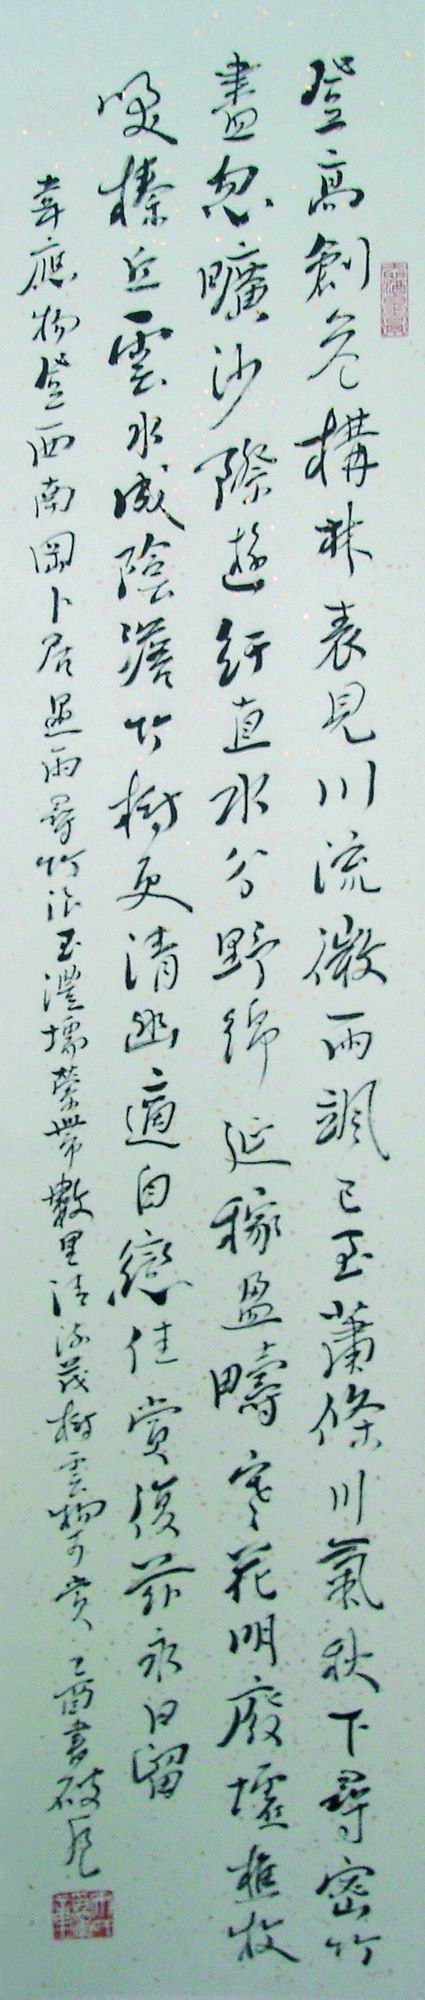 登高創危構林表見川流微雨颯已至蕭條川氣秋下尋密竹
盡忽曠沙際遊紆直水分野綿延稼盈疇寒花明廢墟樵牧
咲榛丘雲水成陰澹竹樹更清幽適自戀佳賞復茲永日留
韋應物登西南岡卜居遇雨尋竹浪至灃壖縈帶數里清流茂樹雲物可賞 乙酉書